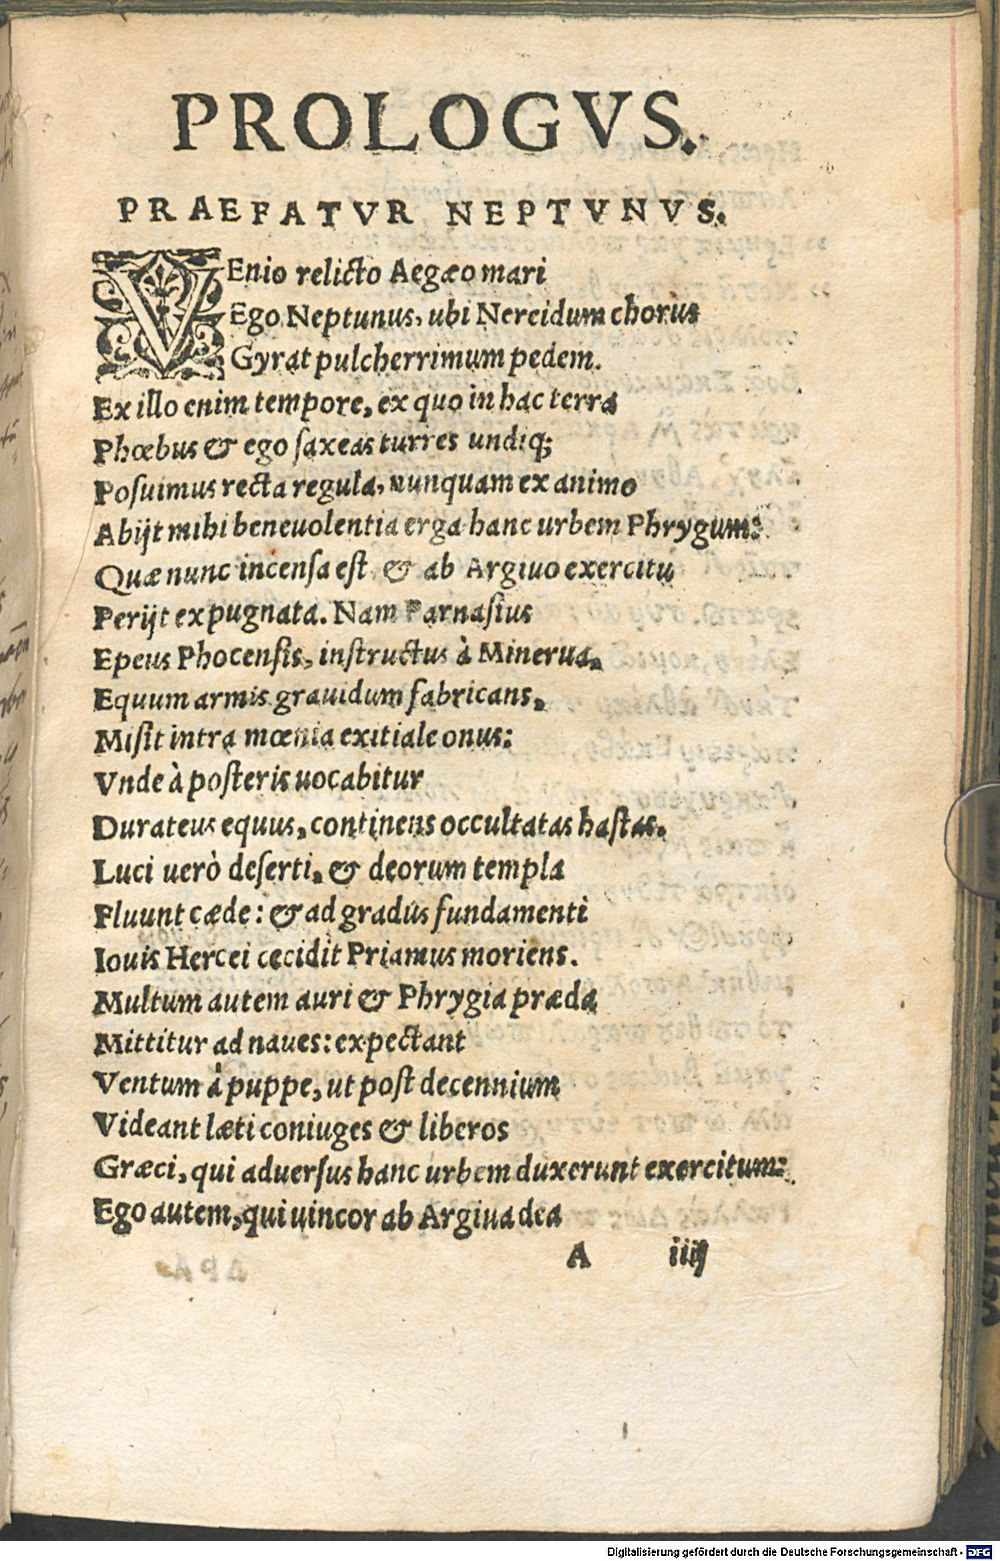 PROLOGVS.
PRAEFATVR NEPTVNVS.
VEnio relicto Aegæo mari
Ego Neptunus, ubi Nereidum chorus
Gyrat pulcherrimum pedem.
Ex illo enim tempore, ex quo in hac terra
Phœbus & ego ſaxeas turres undiq;
Poſuimus recta regula, nunquam ex animo
Abijt mihi beneuolentia erga hanc urbem Phrygum:
Quæ nunc incenſa eſt & ab Argiuo exercitu
Perijt expugnata. Nam Parnaſius
Epeus Phocenſis, inſtructus à Minerua,
Equum armis grauidum fabricans,
Miſit intra mœnia exitiale onus:
Vnde à poſteris uocabitur
Durateus equus, continens occultatas haſtas.
Luci uerò deſerti, & deorum templa
Fluunt cæde: & ad gradus fundamenti
Iouis Hercei cecidit Priamus moriens.
Multum autem auri & Phrygia præda
Mittitur ad naues: expectant
Ventum à puppe, ut poſt decennium
Videant læti coniuges & liberos
Græci, qui aduerſus hanc urbem duxerunt exercitum:
Ego autem, qui uincor ab Argiua dea
A iiij
Digitalisierung gefördert durch die Deutsche Forschungsgemeinschaft - DFG